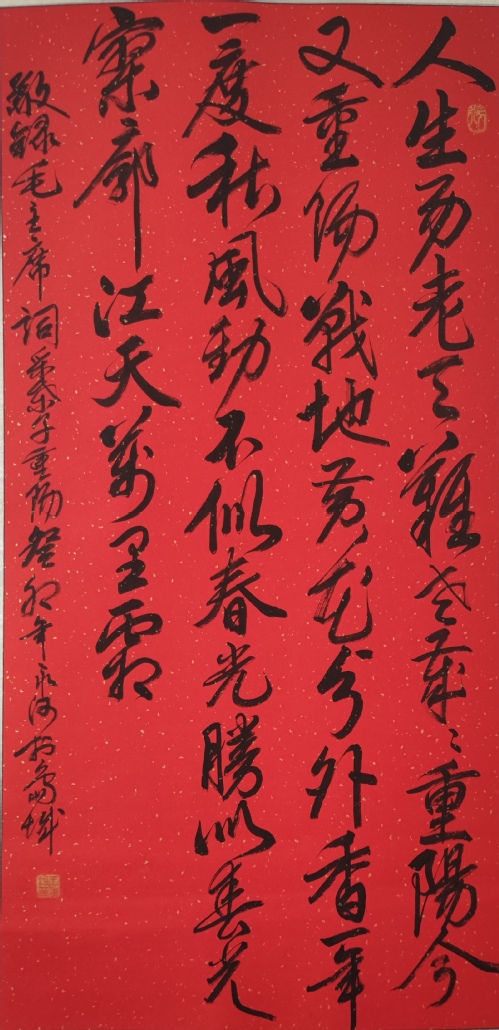 人生易老天難老歲〻重陽今
又重陽戰地黃花分外香一年
一度秋風勁不似春光勝似春光
寥廓江天萬里霜
敬錄毛主席詞采桑子重陽癸卯年永河於烏城